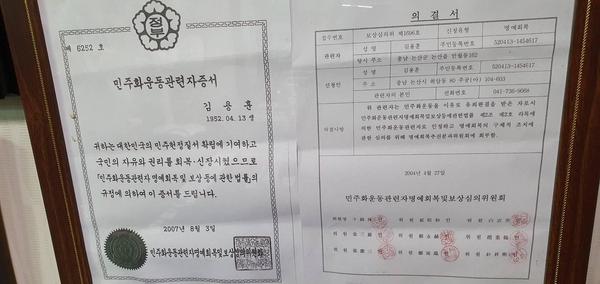 정부
제 6252 호
민주화운동관련자증서
김 용 훈
1952. 04. 13 생
귀하는 대한민국의 민주헌정질서 확립에 기여하고
국민의 자유와 권리를 회복·신장시켰으므로
「민주화운동관련자 명예회복 및 보상 등에 관한 법률」의
규정에 의하여 이 증서를 드립니다.
2007년 8월 3일
민주화운동관련자명예회복및보상심의위원회
의 결 서
접수번호 보상심의위 제1696호 신청유형 명예회복
관련자 성 명 김용훈 주민등록번호
당시 주소 충남 논산군 논산읍
신청인 성 명 김용훈 주민등록번호
주 소 충남 논산시
관련자와의 관계 본인 전화번호
의결사항
위 관련자는 민주화운동을 이유로 유죄판결을 받은 자로서
민주화운동관련자명예회복및보상등에관한법률 제2조 제2호 라목에
의한 민주화운동관련자로 인정하고 명예회복의 구체적 조치에
관한 심의를 위해 명예회복추진분과위원회에 회부함.
2004년 4월 27일
민주화운동관련자명예회복및보상심의위원회
위원장 위 원 위 원
위 원 위 원 위 원
위 원 위 원 위 원